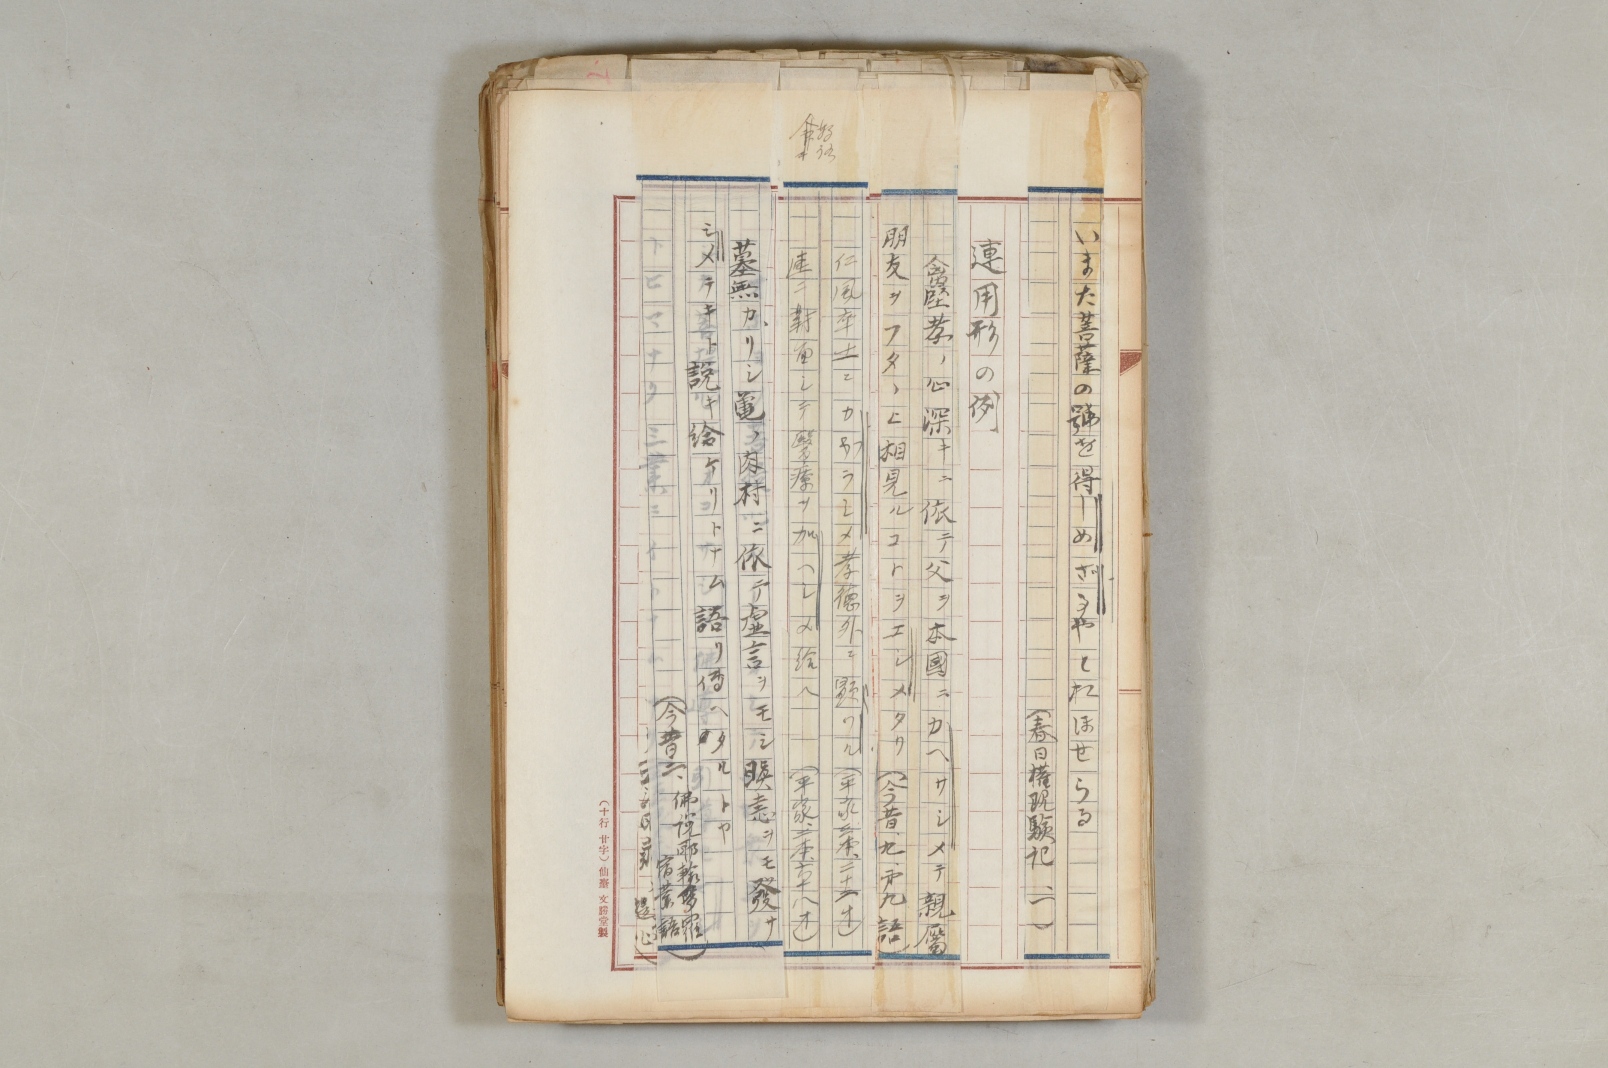 いまた菩薩の號を得しめざるやとおほせらる
(春日權現驗記 二)
連用形の例
孝ノ心深キニ依テ父ヲ本國ニカヘサシメテ親屬
朋友ヲフタヽヒ相見ルコトヲエシメタリ(今昔、九、第九語)
仁風率土ニカヲラシメ孝德外ニ顯ワル(平家三本、二十六オ)
速ニ對面シテ醫療ヲ加ヘシメ給ヘ(平家、二本、六十八オ)
墓無カリシ菴ノ村ニ依テ虛言ヲモシ瞋恚ヲモ發サ
シメテキト說キ給ケリトナム語リ傳ヘタルトヤ
(今昔二、佛說耶輸多羅宿業語)
(十行 廿字) 仙臺 文勝堂製